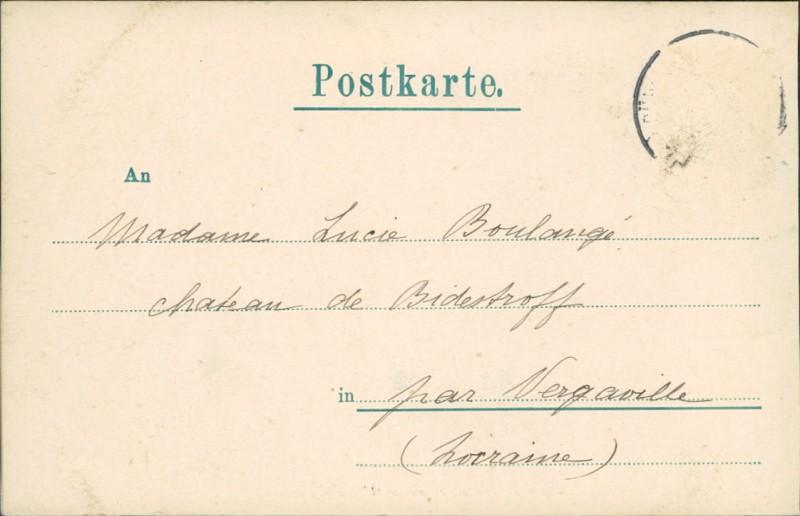 Postkarte.
An
Madame Lucie Boulangé
château de Bidestroff
in par Vergaville
(Lorraine)